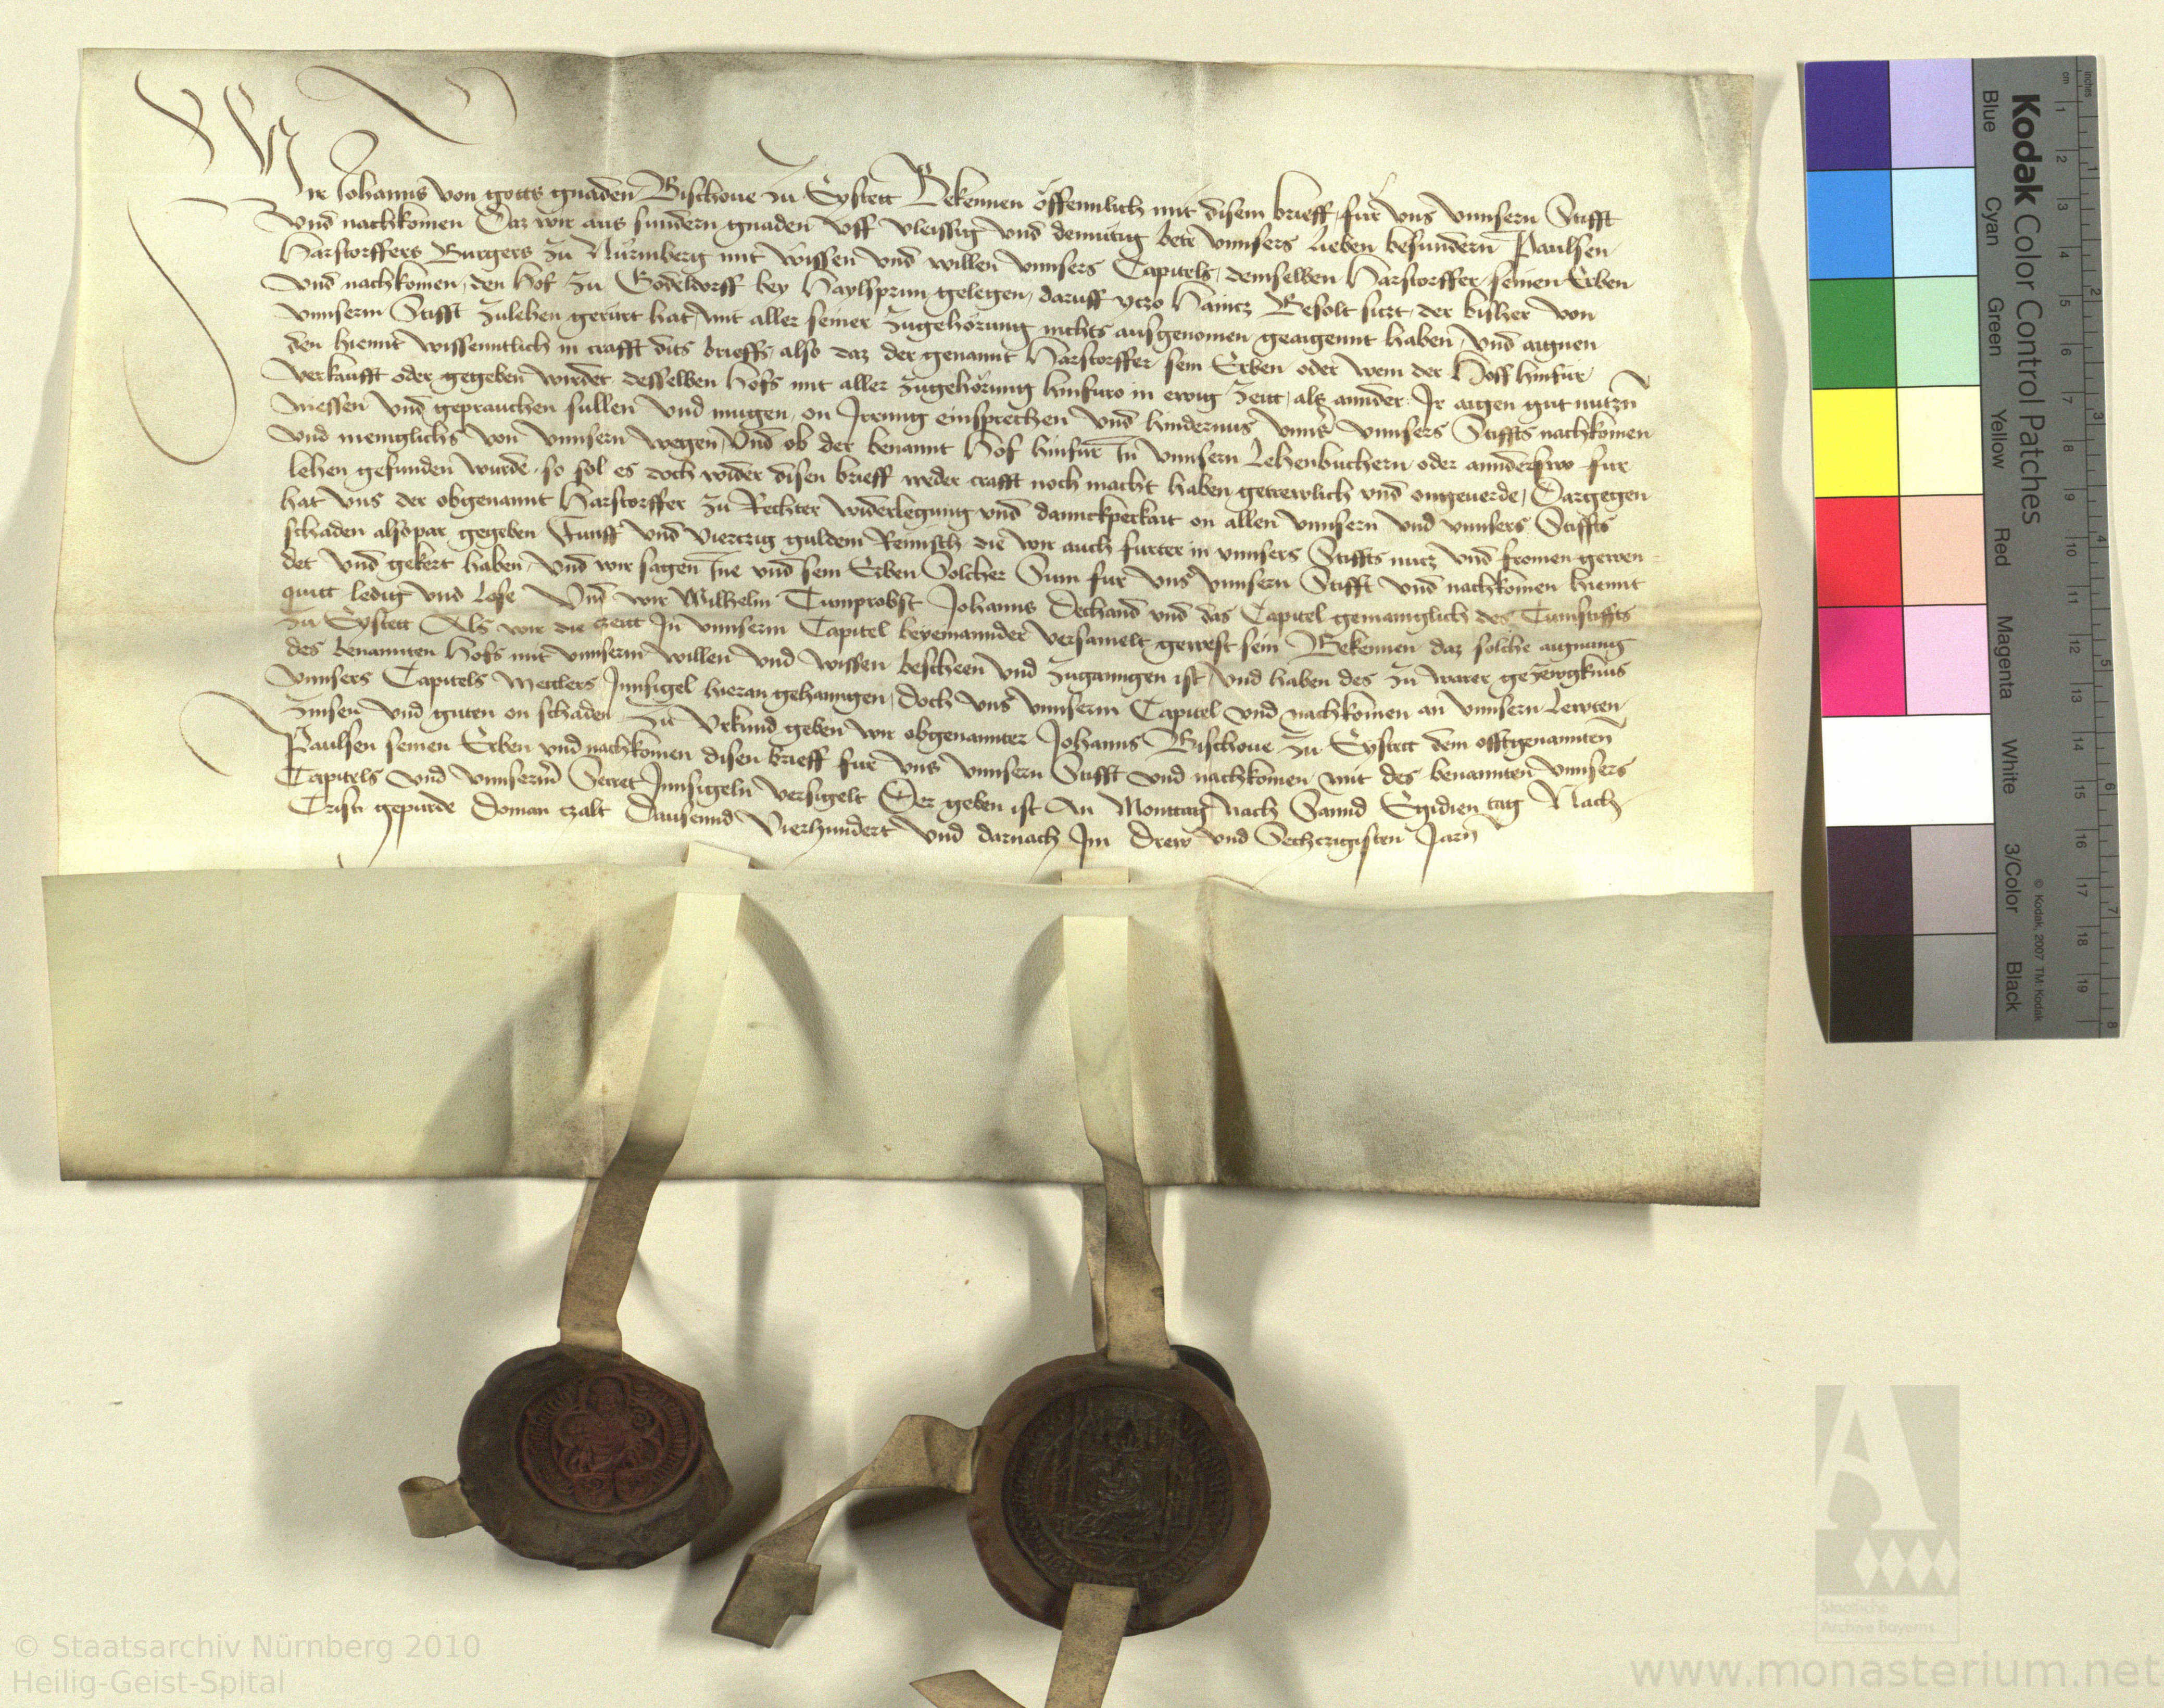 Wir Johanns von gotts gnaden Bischoue zu Eystett Bekennen öffennlich mit disem brieff, für vns vnnsern Stifft
Vnd nachkomen Daz wir aus sundern gnaden vff vleissig vnd demütig bete vnnsers lieben besundern Paulsen
Harstorffers Burgers zu Nüremberg mit wissen vnd willen vnnsers Capitels, demselben Harstorffer, seinen Erben
Vnd nachkomen, den Hof zu Godeldorff bey Haylsprun gelegen, daruff yczo Haincz Besolt siczt, der bisher von
vnnserm Stifft zulehen gerürt hat, mit aller seiner zugehörung nichts ausgenomen geaigennt haben, vnd aignen
den hiemit wissenntlich in crafft dits brieffs, also daz der genannt Harstorffer, sein Erben oder wem der Hoff hinfür
verkaufft oder gegeben wirdet, desselben Hofs mit aller zugehörung hinfuro in ewig zeitt, als annder Ir aigen gut nutzn
niessen vnd geprauchen sullen vnd mugen, on Irrung einsprechen vnd hindernus vnnser vnnsers Stiffts nachkomen
vnd meniglichs von vnnsern wegen, Vnd ob der benannt Hof hinfür In vnnsern Lehenbüchern oder annderswo für
lehen gefunden würde, so sol es doch wider disen brieff weder crafft noch macht haben getrewlich vnd ongeuerde, Dargegen
hat vns der obgenannt Harstorffer zu Rechter widerlegung vnd dannckperkait on allen vnnsern vnd vnnsers Stiffts
schaden alsopar gegeben Funff vnd Vierczig guldein Reinisch, die wir auch furter in vnnsers Stiffts nutz vnd fromen gewen
det vnd gekert haben, Vnd wir sagen Ine vnd sein Erben Solcher Sum für vns vnnsern Stifft vnd nachkomen hiemit
quitt ledig vnd lose Vnd wir Wilhelm Tumprobst Johanns Dechand vnd das Capitel gemainiglich des Tumstiffts
zu Eystett Als wir die zeitt In vnnserm Capitel beyeinannder versamelt gewest sein Bekennen daz solche aignung
des benannten Hofs mit vnnserm willen vnd wissen bescheen vnd zuganngen ist, Vnd haben des zu warer gezewgknüs
vnnsers Capitels Mettlers Innsigel hieran gehanngen, Doch vns vnnserm Capitel vnd nachkomen an vnnsern Lewten
zinsen vnd guten on schaden Zu Vrkund geben wir obgenannter Johanns Bischoue zu Eystett dem offtgenannten
Paulsen seinen Erben vnd nachkomen disen brieff für vns vnnsern Stifft vnd nachkomen, mit des benannten vnnsers
Capitels vnd vnnserm Secret Innsigeln versigelt Der geben ist An Monttag Nach Sannd Egidien tag Nach
Cristi gepurde Do man czalt Dausennd Vierhundert vnd darnach Im Drew vnd Sechczigisten Jarn
Kodak Color Control Patches
Blue Cyan Green Yellow Red Magenta White 3/Color Black
© Kodak, 2007 TM: Kodak
cm 1 2 3 4 5 6 7 8 9 10 11 12 13 14 15 16 17 18 19
inches 1 2 3 4 5 6 7 8
Staatliche
Archive Bayerns
© Staatsarchiv Nürnberg 2010
Heilig-Geist-Spital
www.monasterium.net